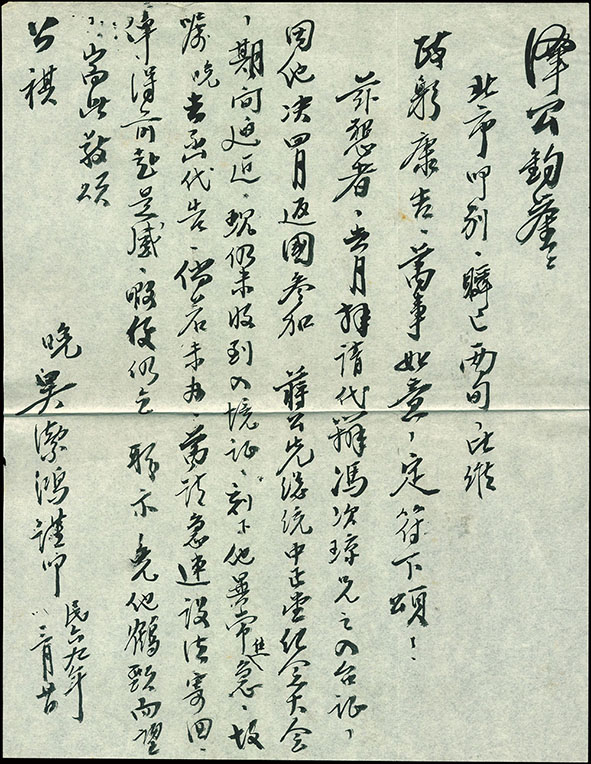 澤公鈞鑒：
北市叩別、瞬已兩旬、比維
政躬康吉、萬事如意、定符下頌！
茲懇者、去月拜請代辦馮次瓊兄之入台証、
因他決四月返國參加 蔣公先總統中正堂紀念大會
、期間迫近、現仍未收到入境証、刻下他異常焦急、故
囑晚去函代告、倘若未办、萬請急速設法寄回、
俾得前赴是感、暇後仍乞 聯示 免他鶴頸而望
、耑此敬頌
公祺
晚吳潔鴻謹叩 民六九年
三月廿